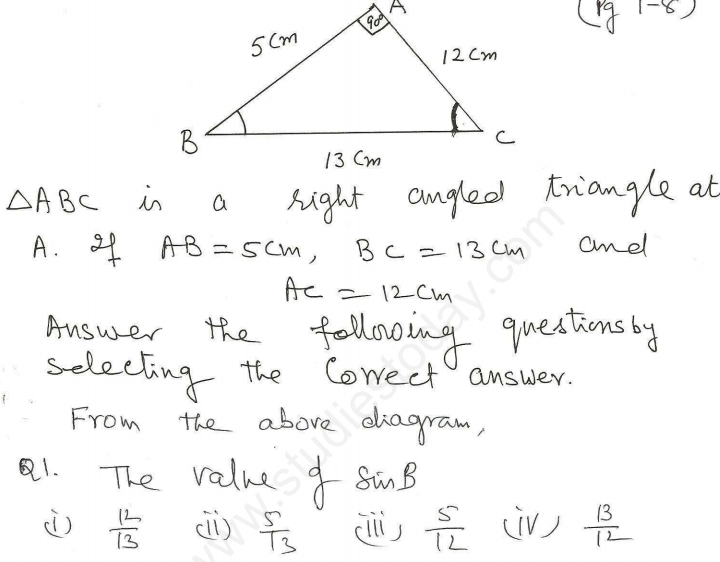 (Pg 1-8)
A
90°
5 cm
12 cm
B
C
13 cm
△ABC is a right angled triangle at
A. If AB = 5cm, BC = 13 cm and
AC = 12 cm
Answer the following questions by
selecting the correct answer.
From the above diagram,
Q1. The value of sin B
(i) 12/13 (ii) 5/13 (iii) 5/12 (iv) 13/12
www.studiestoday.com